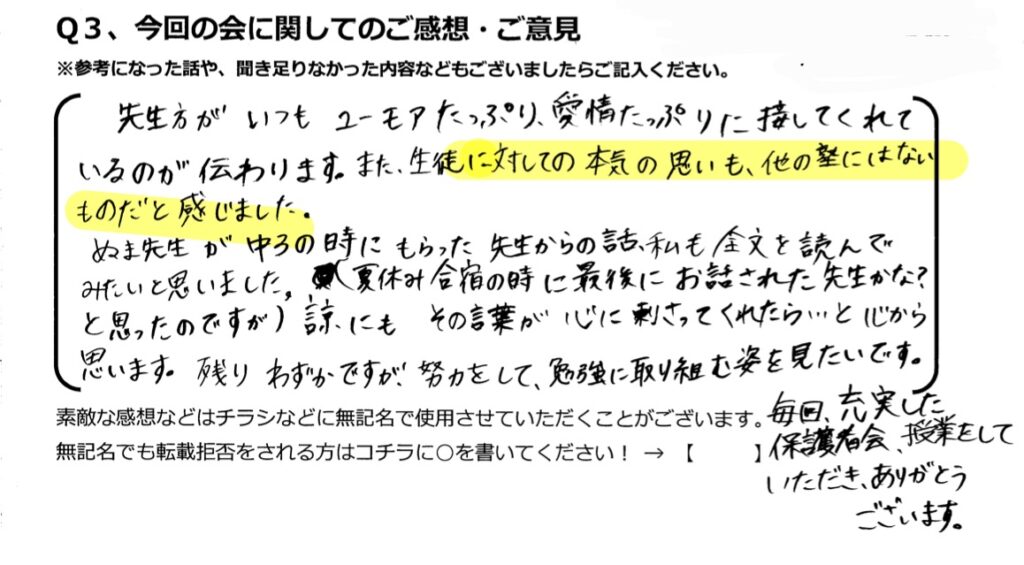 Q３、今回の会に関してのご感想・ご意見
※参考になった話や、聞き足りなかった内容などもございましたらご記入ください。
先生方が いつも ユーモアたっぷり、愛情たっぷりに 接してくれて
いるのが 伝わります。また、生徒に対しての 本気の思いも、他の塾にはない
ものだと 感じました。
ぬま先生 が 中3の時に もらった 先生からの話、私も 全文を読んで
みたいと思いました。(夏休み合宿の時に最後に お話された先生かな?
と思ったのですが) 諒にも その言葉が 心に 刺さってくれたら…と心から
思います。残り わずかですが、努力をして、勉強に取り組む姿を見たいです。
素敵な感想などはチラシなどに無記名で使用させていただくことがございます。
無記名でも転載拒否をされる方はコチラに○を書いてください！ → 【 】
毎回、充実した
保護者会、授業をして
いただき、ありがとう
ございます。